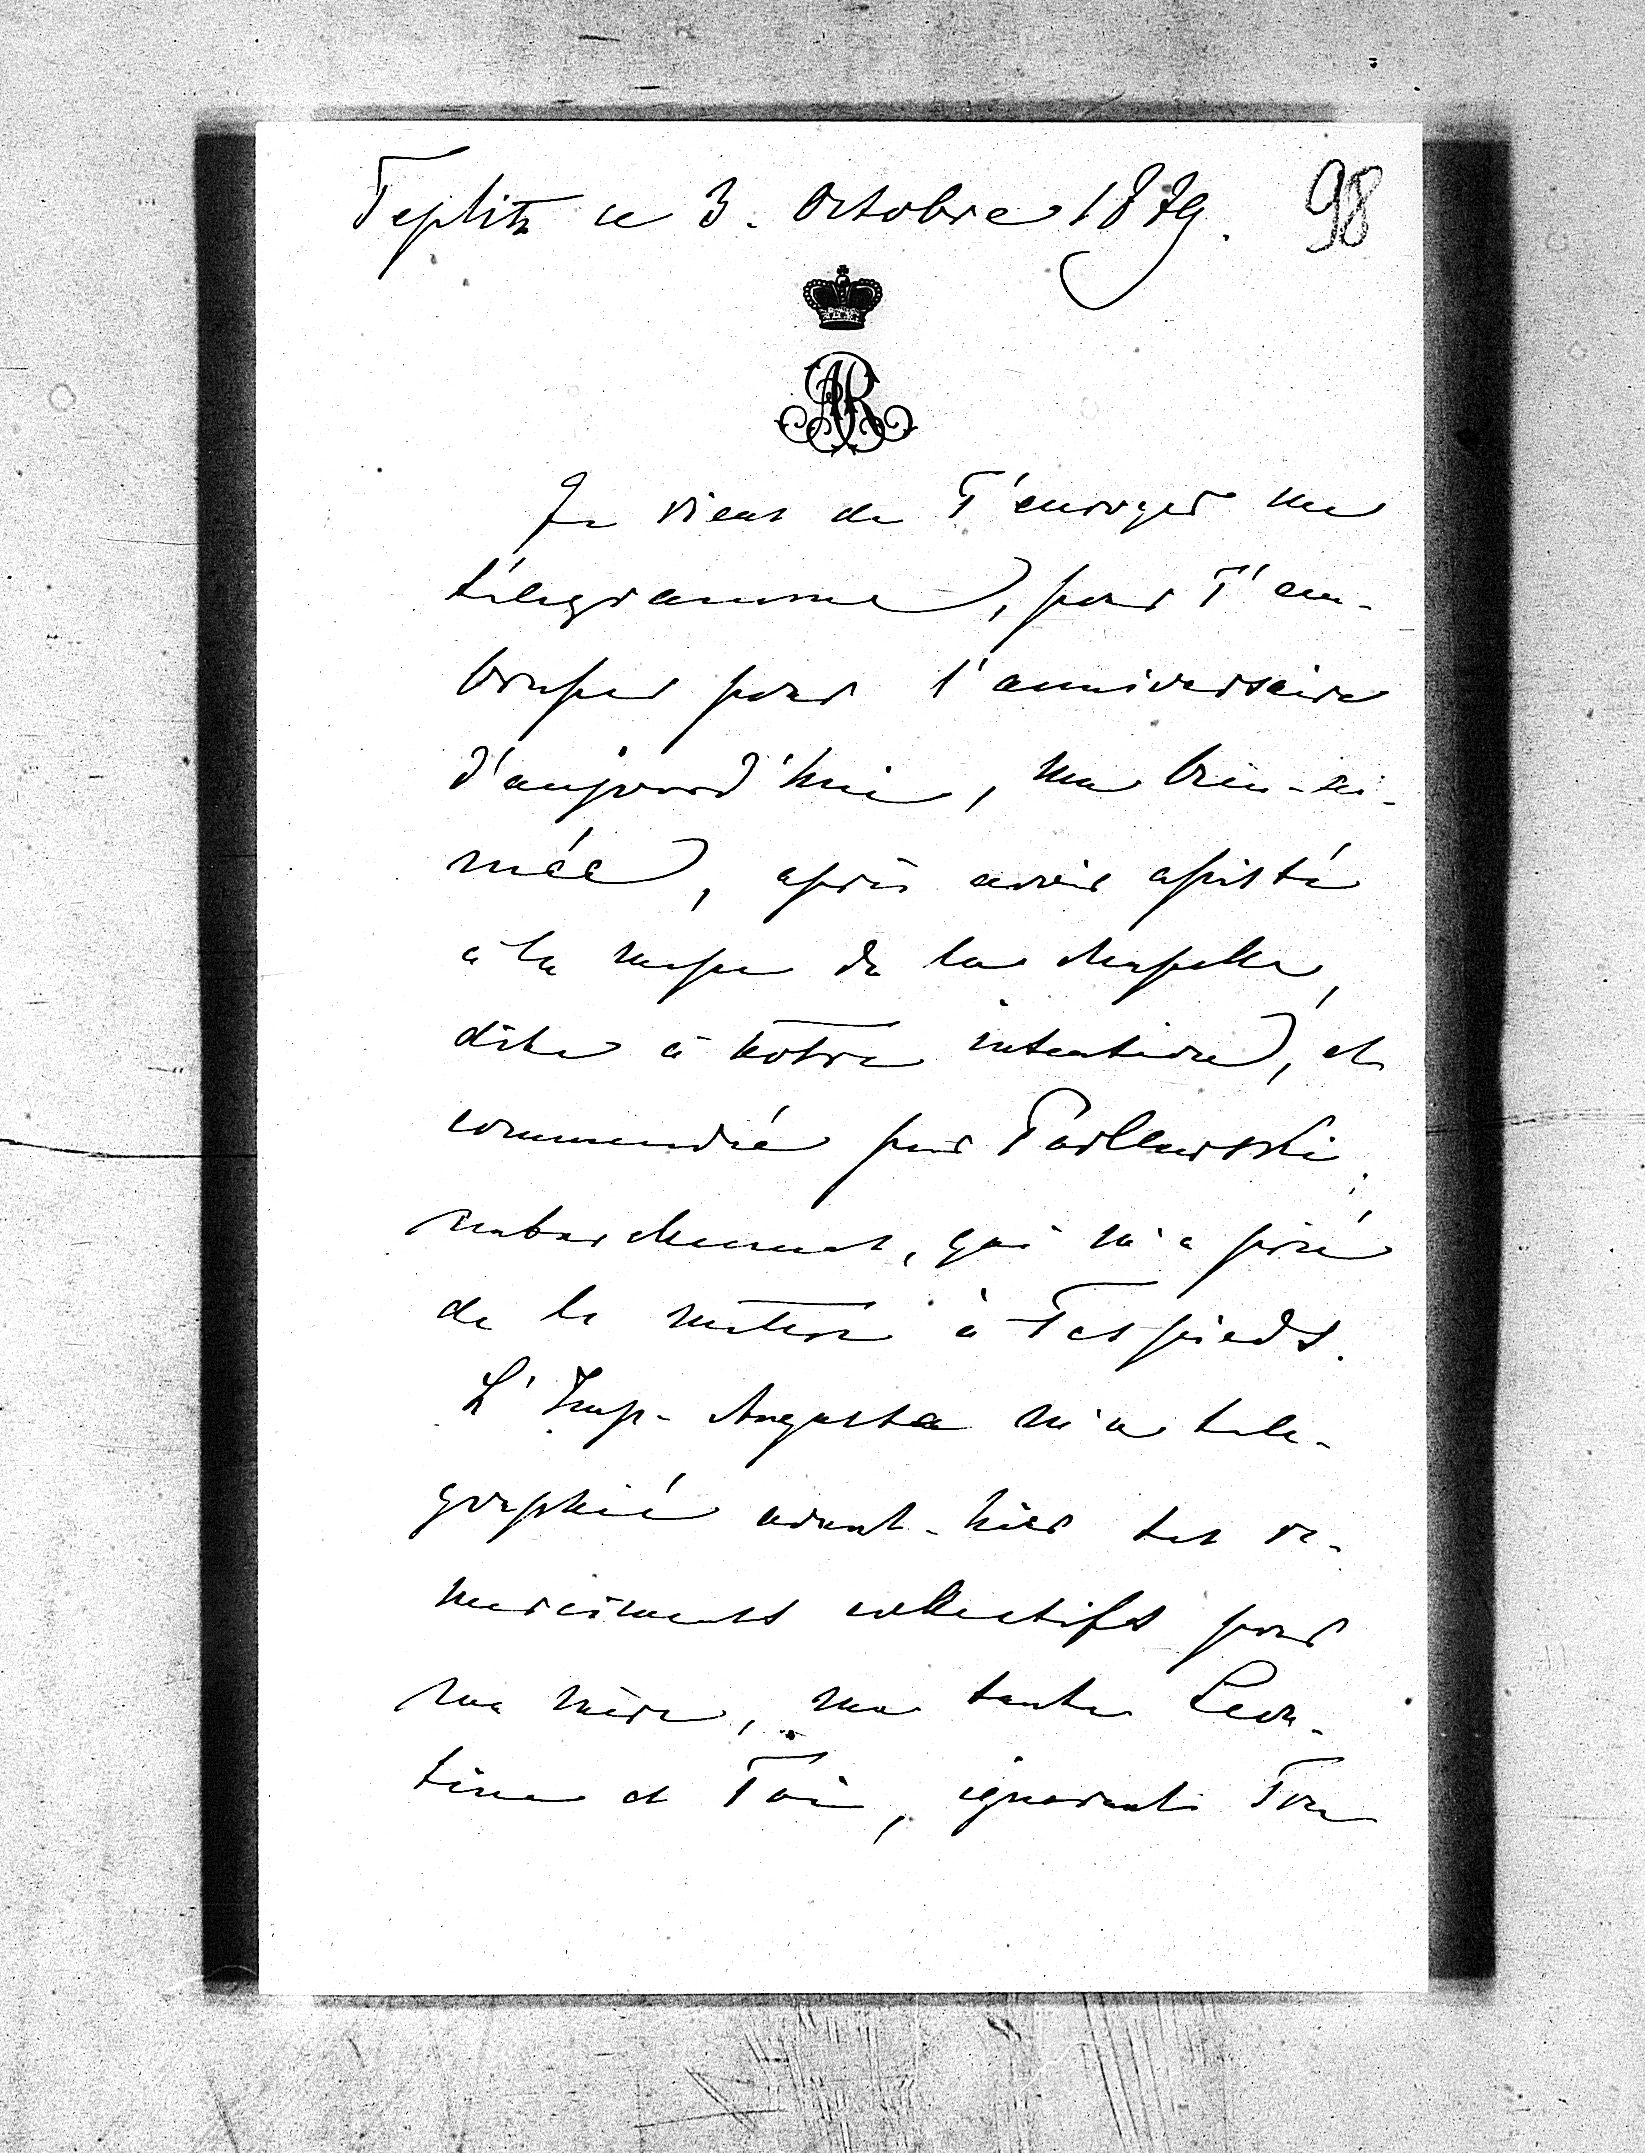 Teplitz ce 3. Octobre 1879. 98
AR
Je viens de T'envoyer un
télégramme, pour T'em-
brasser pour l'anniversaire
d'aujourd'hui, ma bien-ai-
mée, après avoir assisté
à la messe de la chapelle,
dite à notre intention, et
commandée par
qui m'a prié
de le mettre à Tes pieds.
L'Imp. Augusta m'a télé-
graphié avant-hier des re-
mercîments collectifs pour
ma mère, ma tante Léon-
tine et Toi, ignorant Ton